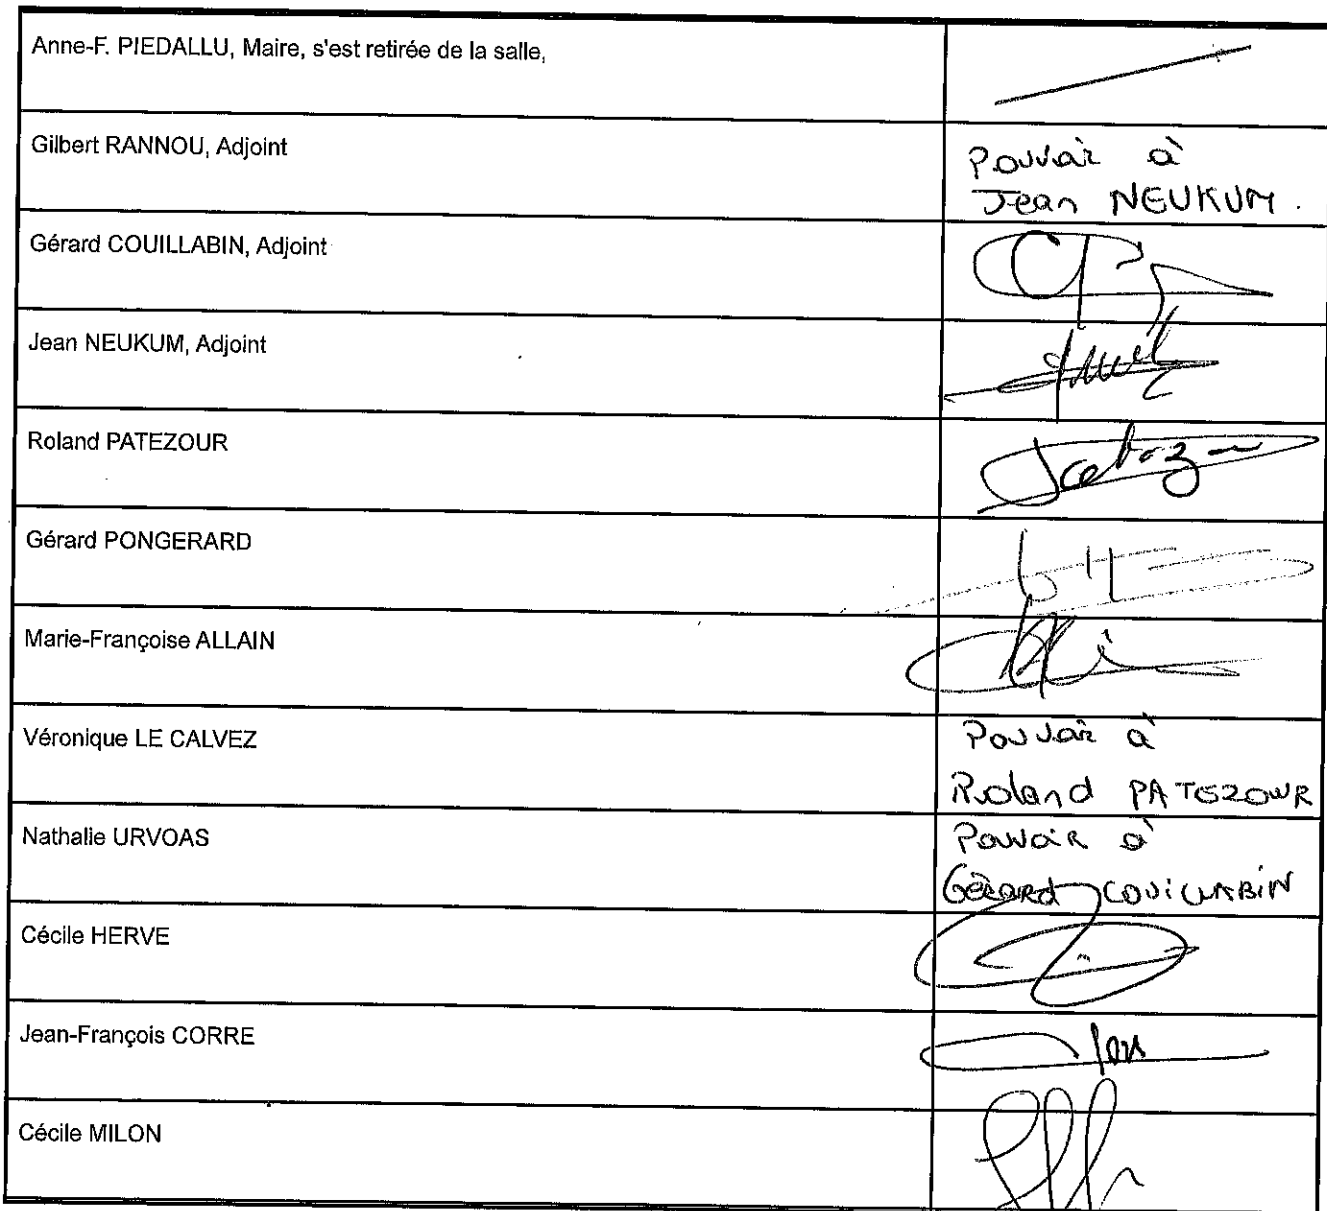 Anne-F. PIEDALLU, Maire, s'est retirée de la salle,
Gilbert RANNOU, Adjoint
Pouvoir à
Jean NEUKUM.
Gérard COUILLABIN, Adjoint
Jean NEUKUM, Adjoint
Roland PATEZOUR
Gérard PONGERARD
Marie-Françoise ALLAIN
Véronique LE CALVEZ
Pouvoir à
Roland PATEZOUR
Nathalie URVOAS
Pouvoir à
Gérard COUILLABIN
Cécile HERVE
Jean-François CORRE
Cécile MILON